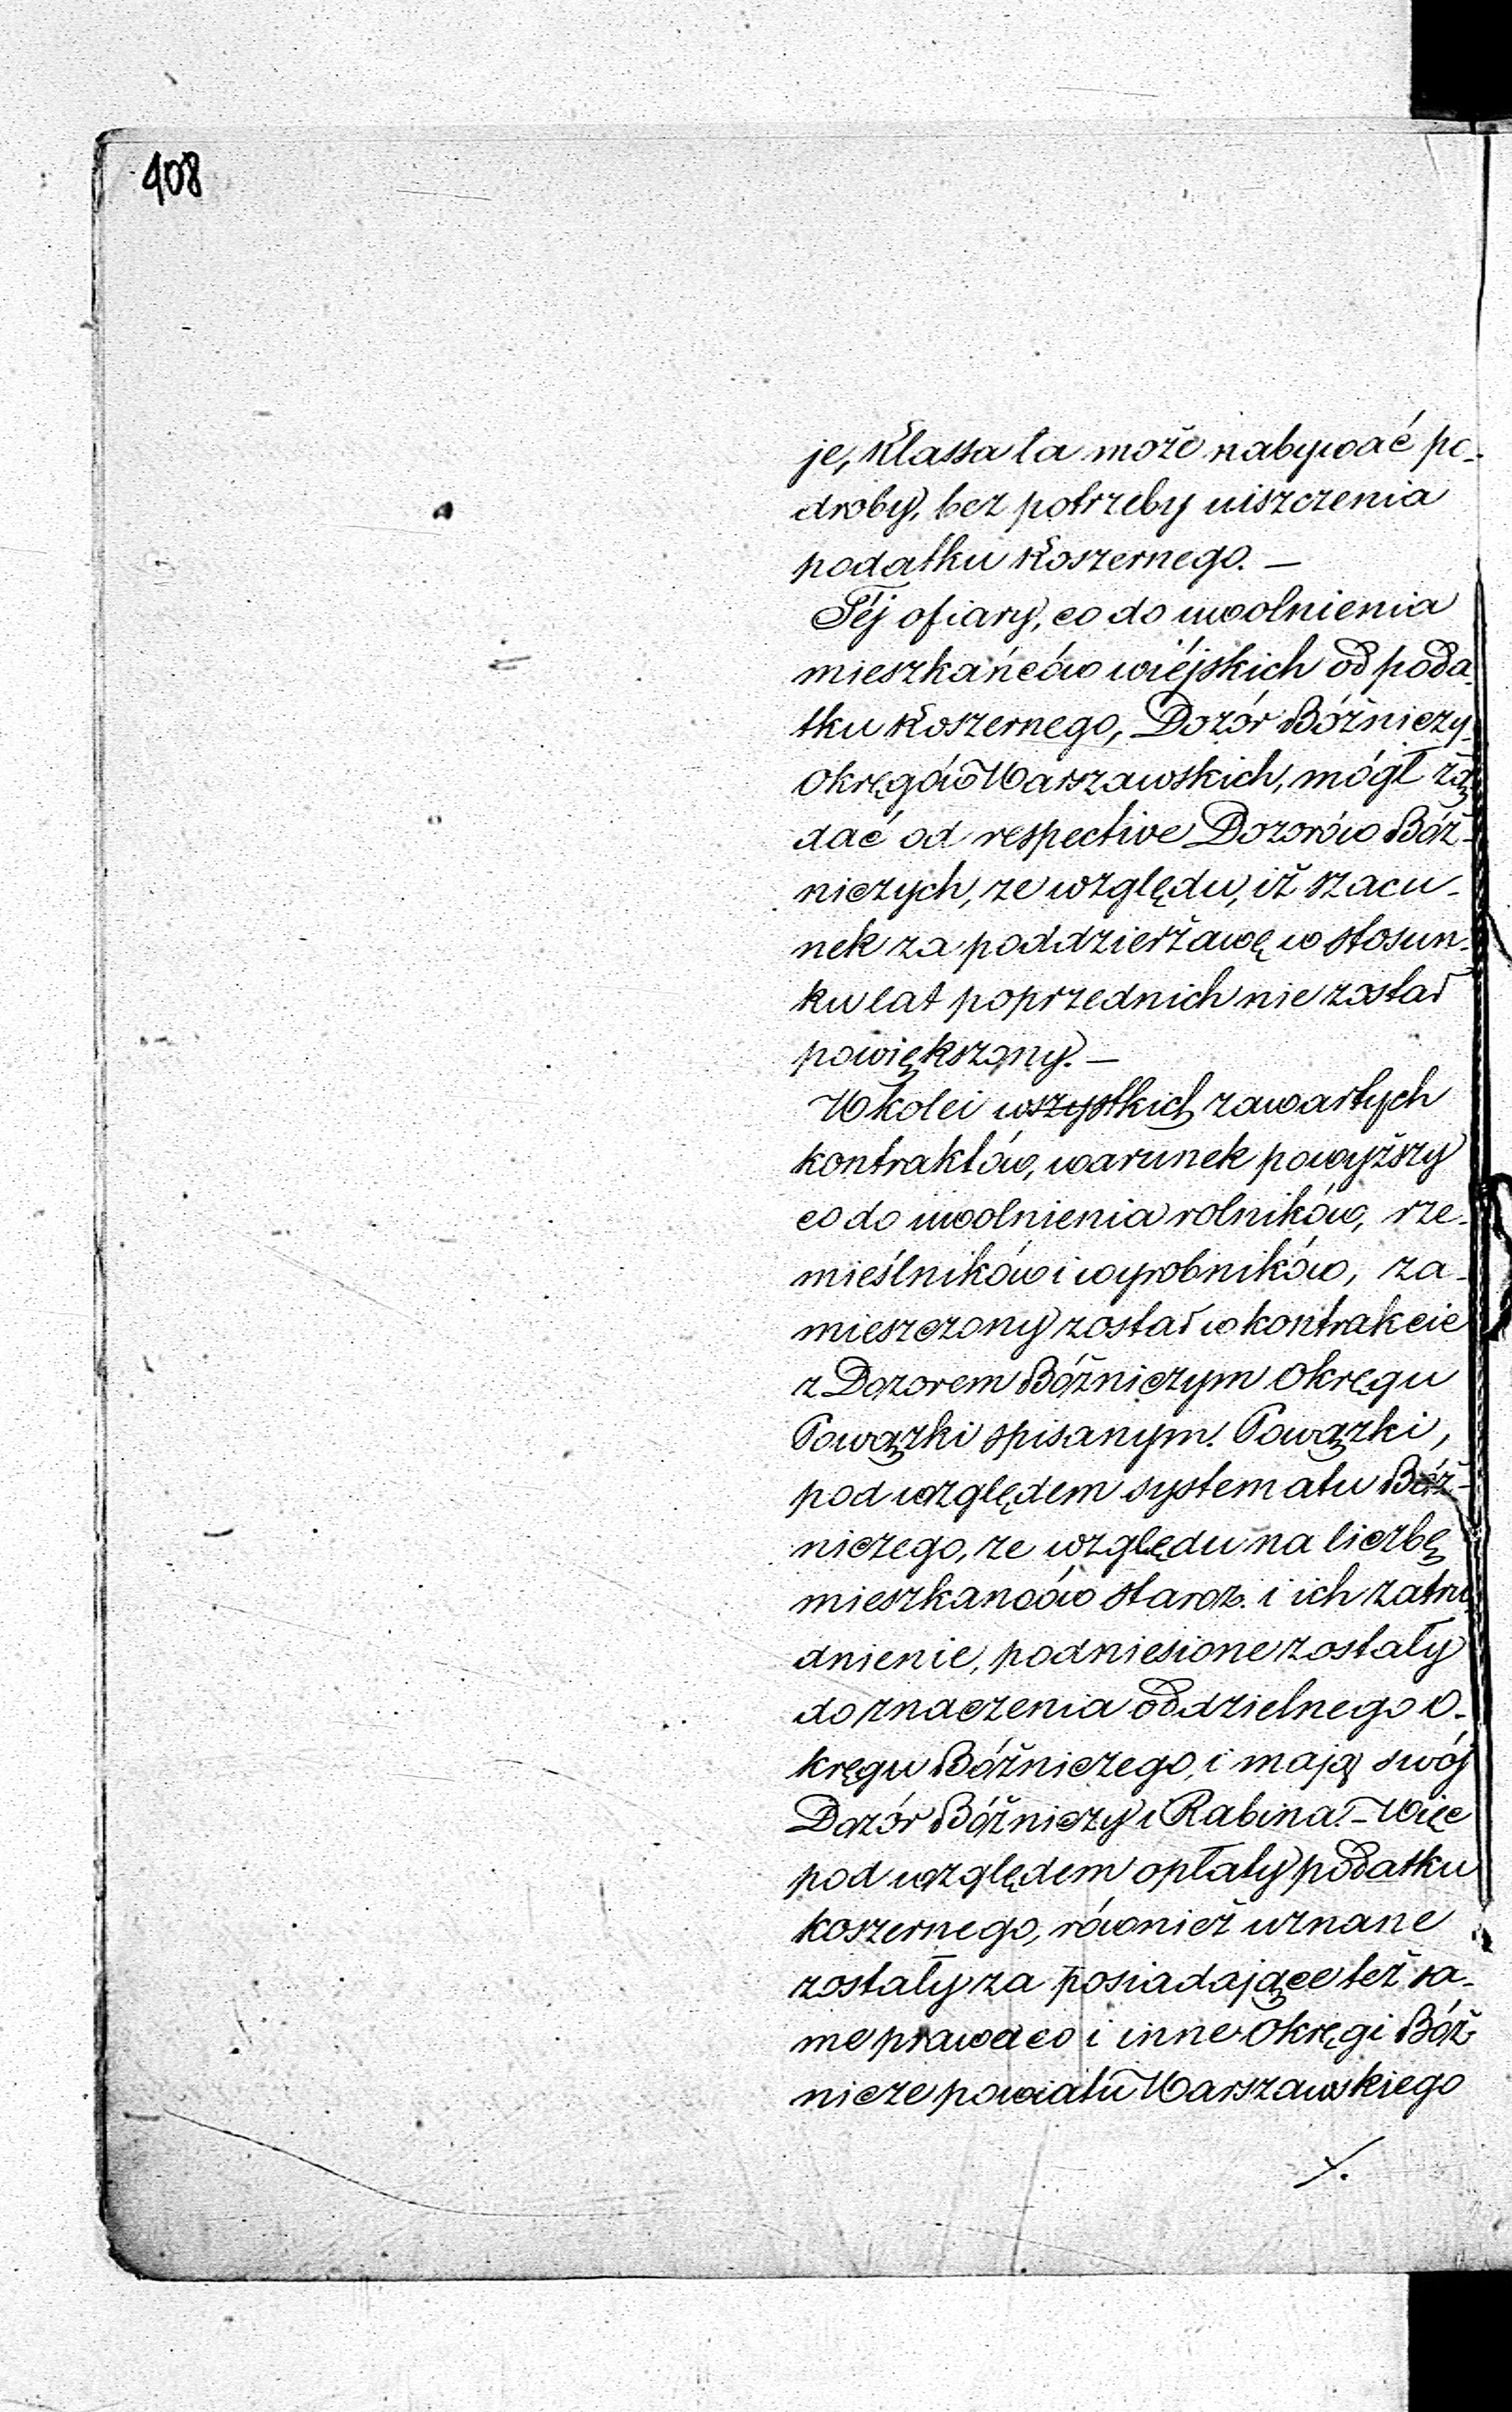 408
je, Klassa ta może nabywać po-
droby, bez potrzeby uiszczenia
podatku Koszernego. —
Téj ofiary, co do uwolnienia
mieszkańców wiéjskich od poda-
tku Koszernego, Dozór Bóżniczy
Okręgów Warszawskich, mógł żą
dać od respective Dozorów Bóż-
niczych, ze względu, iż szacu-
nek za poddzierżawę w stosun-
ku lat poprzednich nie został
powiększony. —
W kolei wszystkich zawartych
kontraktów, warunek powyższy
co do uwolnienia rolników, rze-
mieślników i wyrobników, za-
mieszczony został w kontrakcie
z Dozorem Bóżniczym Okręgu
Powązki spisanym. Powązki,
pod względem systematu Bóż-
niczego, ze względu na liczbę
mieszkanców staroz. i ich zatru
dnienie, podniesione zostały
do znaczenia oddzielnego O-
kręgu Bóżniczego, i mają swój
Dozór Bóżniczy i Rabina. – Więc
pod względem opłaty podatku
koszernego, również uznane
zostały za posiadające też sa-
me prawa co i inne Okręgi Bóż
nicze powiatu Warszawskiego